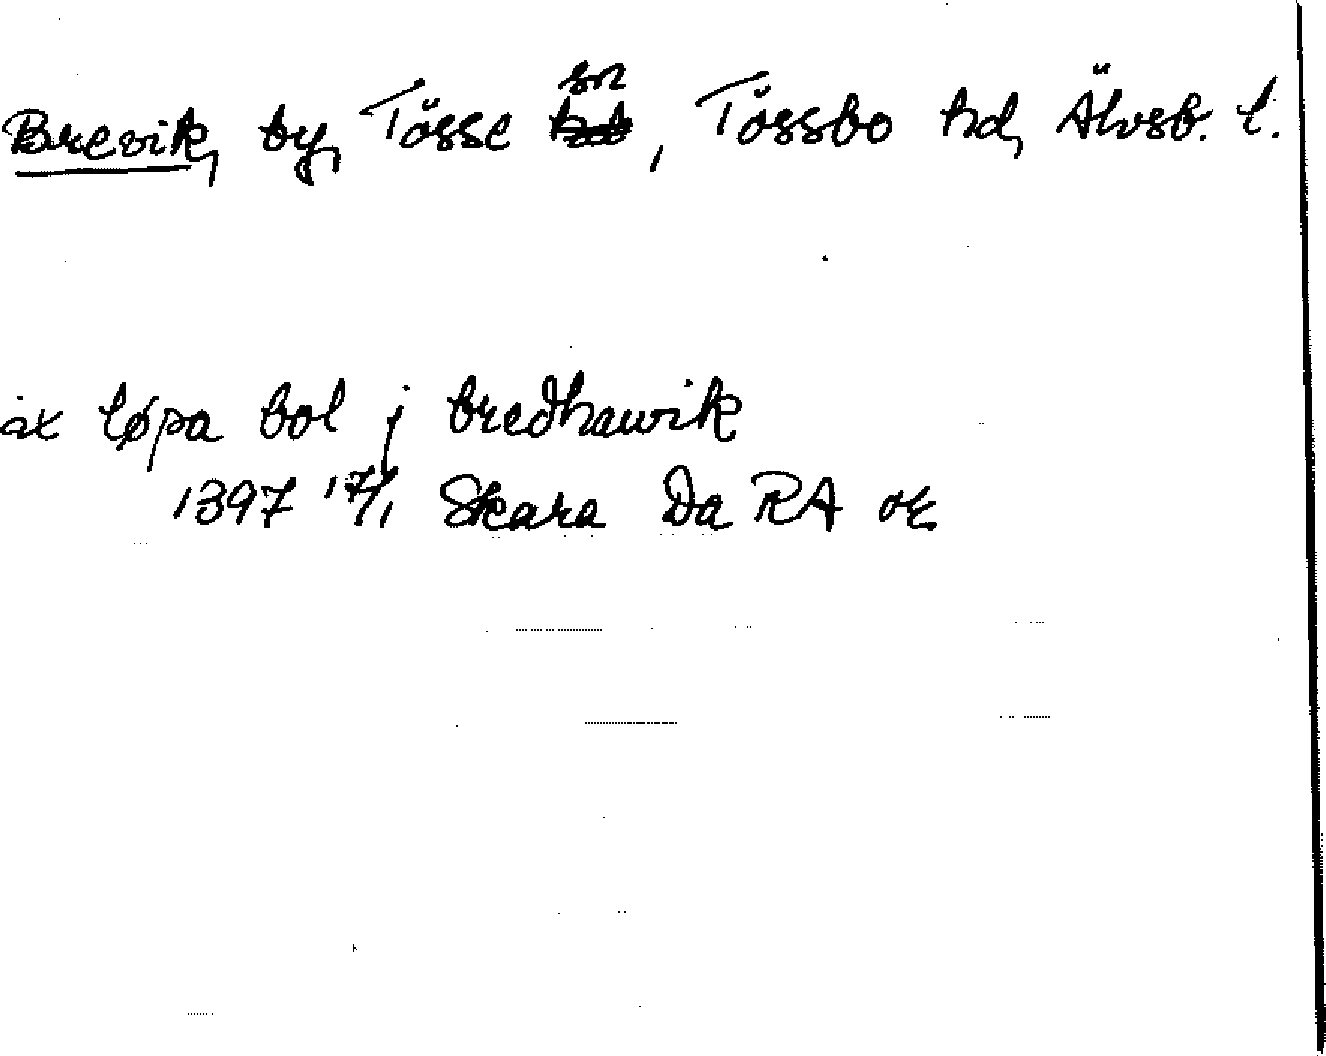 Brevik, by, Tösse sn, Tössbo hd, Älvsb. l.
ix løpa bol j bredhawik
1397 17/1 Skara Da RA or